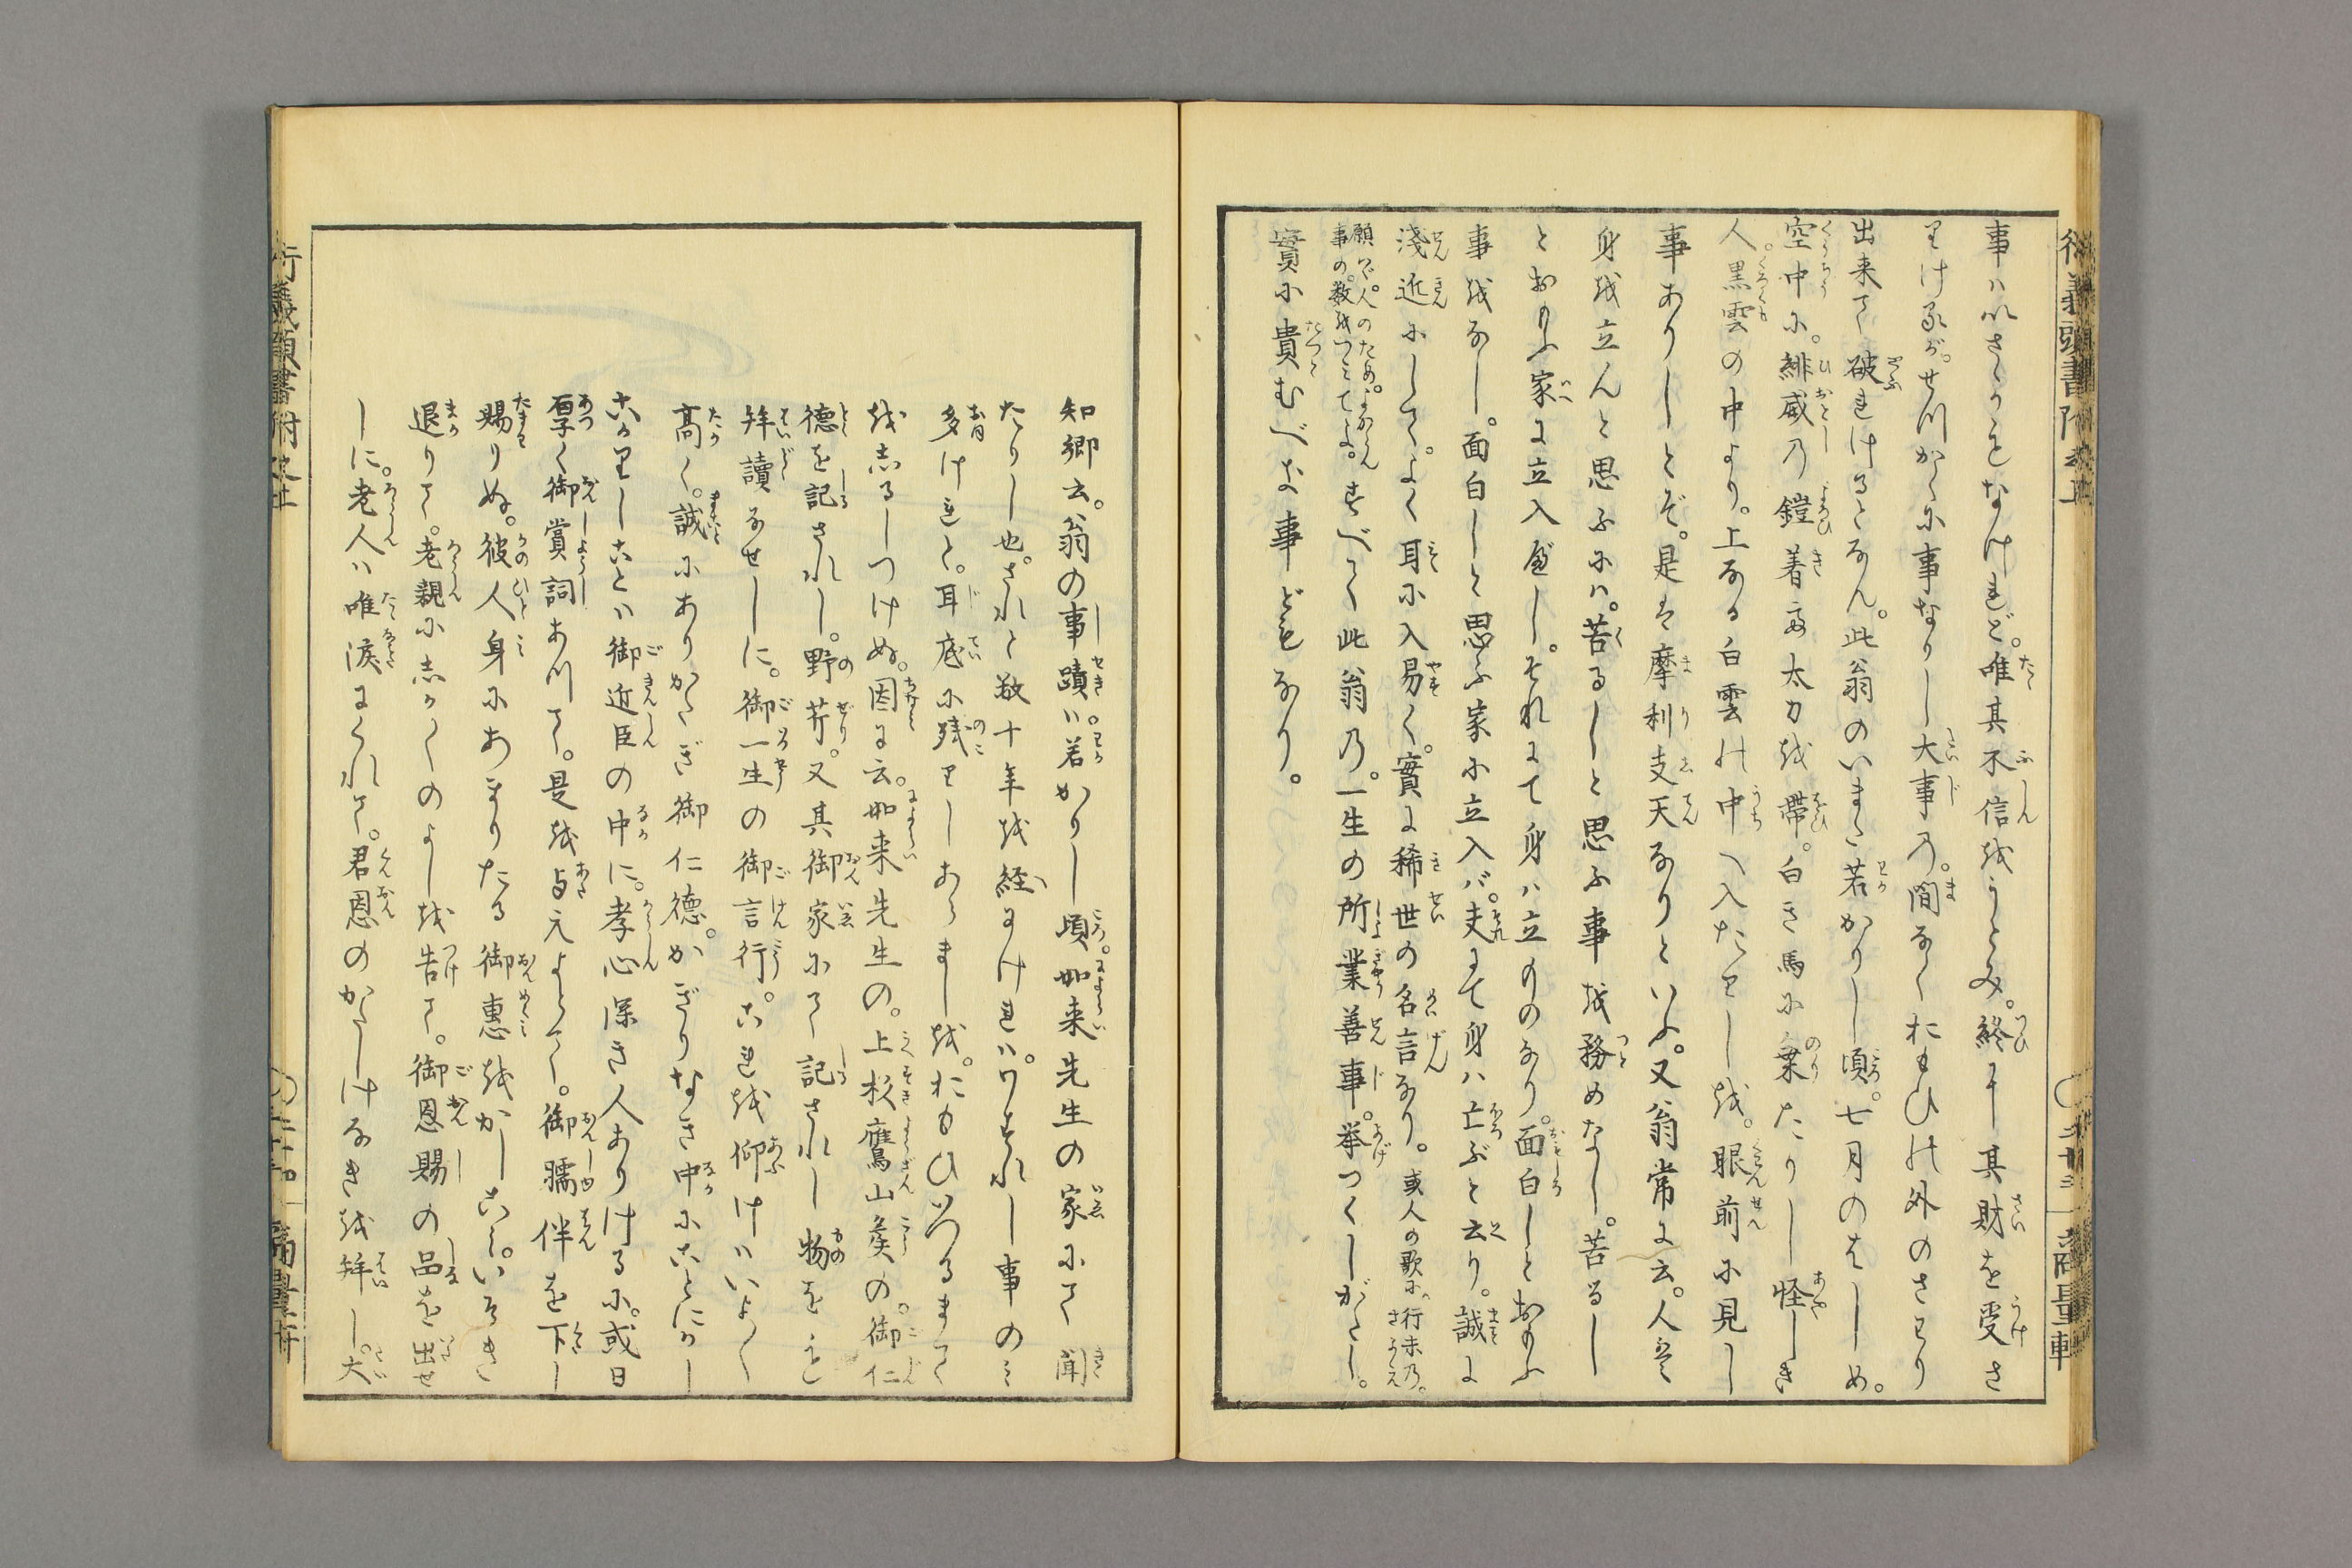 事ハいさゝもなけれど。唯其不信をうとみ。終に其財を受さ
りけるが。せつかく事なりし大事の。間なくおもひの外のさはり
出来て破れけるとなん。此翁のいまだ若かりし頃。七月のはじめ。
空中に。緋威の鎧着て太刀を帯。白き馬に乗たりし怪しき
人。黒雲の中より。上なる白雲の中へ入たりしを。眼前に見し
事ありしとぞ。是は摩利支天なりといふ。又翁常に云。人は
身を立んと思ふにハ。苦るしと思ふ事を務めなし。苦るし
とおもふ家に立入べし。それにて身ハ立ものなり。面白しとおもふ
事をなし。面白しと思ふ家に立入バ。夫にて身ハ亡ぶと云り。誠に
淺近にして。よく耳に入易く。實に稀世の名言なり。或人の歌に。行末の。さかえ
願はゞ。人のため。よからん事の。数をつみてよ。すべて此翁の。一生の所業善事。挙つくしがたし。
實に貴むべき事どもなり。
知郷云。翁の事蹟ハ若かりし頃。如来先生の家にて聞
たりし也。されど数十年を経にければ。わすれし事のミ
多けれど。耳底に残りしあらましを。おもひいづるまゝ
をしるしつけぬ。因に云。如来先生の。上杉鷹山侯の。御仁
徳を記されし。野芹。又其御家にて記されし物をも
拝讀なせしに。御一生の御言行。これを仰げハいよ〱
高く。誠にありがたき御仁徳。かぎりなき中にことにかし
こかりしことハ御近臣の中に。孝心深き人ありけるに。或日
厚く御賞詞あつて。是を与えよとて。御襦伴を下し
賜りぬ。彼人身にあまりたる御惠をかしこみ。いそぎ
退りて。老親にしか〱のよしを告て。御恩賜の品を出せ
しに。老人ハ唯涙にくれて。君恩のかたじけなきを拝し。大